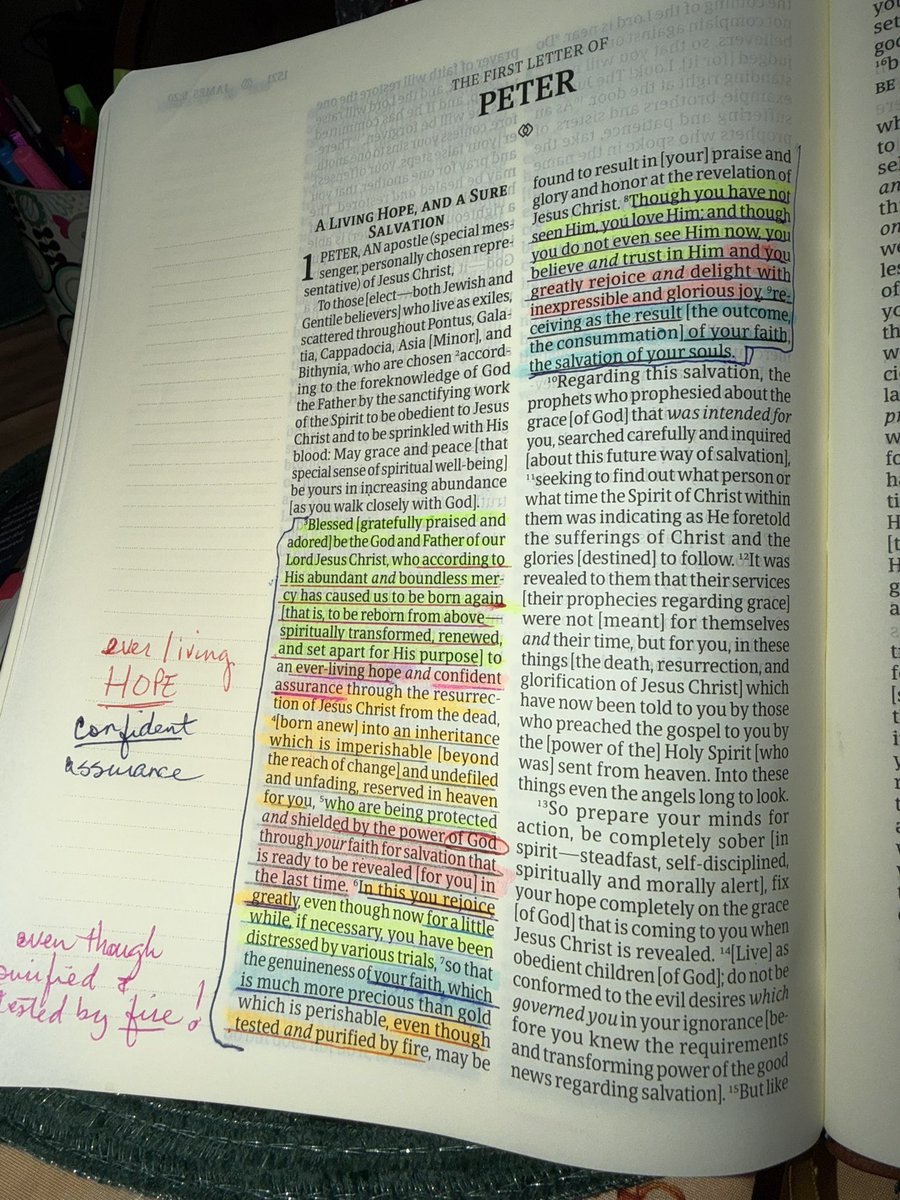 THE FIRST LETTER OF
PETER
A LIVING HOPE, AND A SURE
SALVATION
1 PETER, AN apostle (special mes-
senger, personally chosen repre-
sentative) of Jesus Christ,
To those [elect—both Jewish and
Gentile believers] who live as exiles,
scattered throughout Pontus, Gala-
tia, Cappadocia, Asia [Minor], and
Bithynia, who are chosen ²accord-
ing to the foreknowledge of God
the Father by the sanctifying work
of the Spirit to be obedient to Jesus
Christ and to be sprinkled with His
blood: May grace and peace [that
special sense of spiritual well-being]
be yours in increasing abundance
[as you walk closely with God].
³Blessed [gratefully praised and
adored] be the God and Father of our
Lord Jesus Christ, who according to
His abundant and boundless mer-
cy has caused us to be born again
[that is, to be reborn from above—
spiritually transformed, renewed,
and set apart for His purpose] to
an ever-living hope and confident
assurance through the resurrec-
tion of Jesus Christ from the dead,
⁴[born anew] into an inheritance
which is imperishable [beyond
the reach of change] and undefiled
and unfading, reserved in heaven
for you, ⁵who are being protected
and shielded by the power of God
through your faith for salvation that
is ready to be revealed [for you] in
the last time. ⁶In this you rejoice
greatly, even though now for a little
while, if necessary, you have been
distressed by various trials, ⁷so that
the genuineness of your faith, which
is much more precious than gold
which is perishable, even though
tested and purified by fire, may be
found to result in [your] praise and
glory and honor at the revelation of
Jesus Christ. ⁸Though you have not
seen Him, you love Him; and though
you do not even see Him now, you
believe and trust in Him and you
greatly rejoice and delight with
inexpressible and glorious joy, ⁹re-
ceiving as the result [the outcome,
the consummation] of your faith,
the salvation of your souls.
¹⁰Regarding this salvation, the
prophets who prophesied about the
grace [of God] that was intended for
you, searched carefully and inquired
[about this future way of salvation],
¹¹seeking to find out what person or
what time the Spirit of Christ within
them was indicating as He foretold
the sufferings of Christ and the
glories [destined] to follow. ¹²It was
revealed to them that their services
[their prophecies regarding grace]
were not [meant] for themselves
and their time, but for you, in these
things [the death, resurrection, and
glorification of Jesus Christ] which
have now been told to you by those
who preached the gospel to you by
the [power of the] Holy Spirit [who
was] sent from heaven. Into these
things even the angels long to look.
¹³So prepare your minds for
action, be completely sober [in
spirit—steadfast, self-disciplined,
spiritually and morally alert], fix
your hope completely on the grace
[of God] that is coming to you when
Jesus Christ is revealed. ¹⁴[Live] as
obedient children [of God]; do not be
conformed to the evil desires which
governed you in your ignorance [be-
fore you knew the requirements
and transforming power of the good
news regarding salvation]. ¹⁵But like
ever living
HOPE
confident
assurance
even though
purified &
tested by fire!